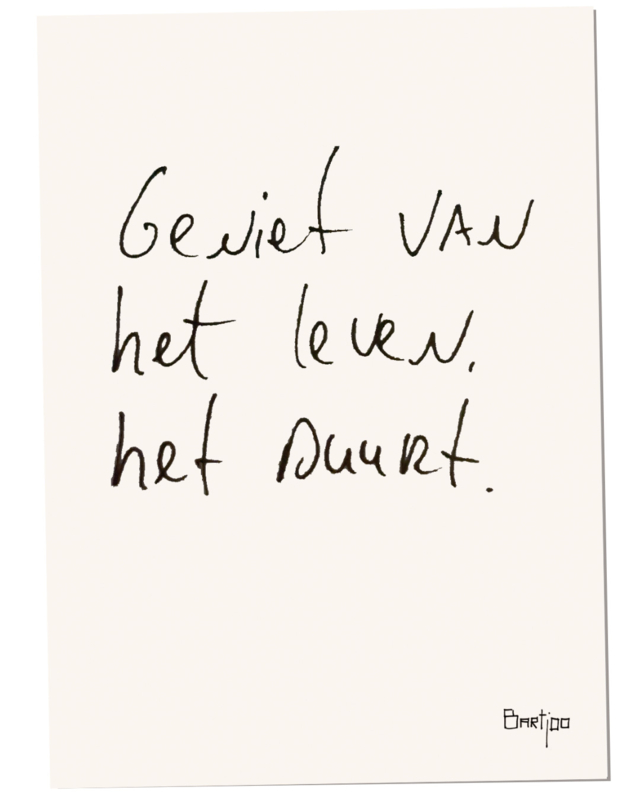 Geniet van
het leven,
het duurt.
Bartjoo